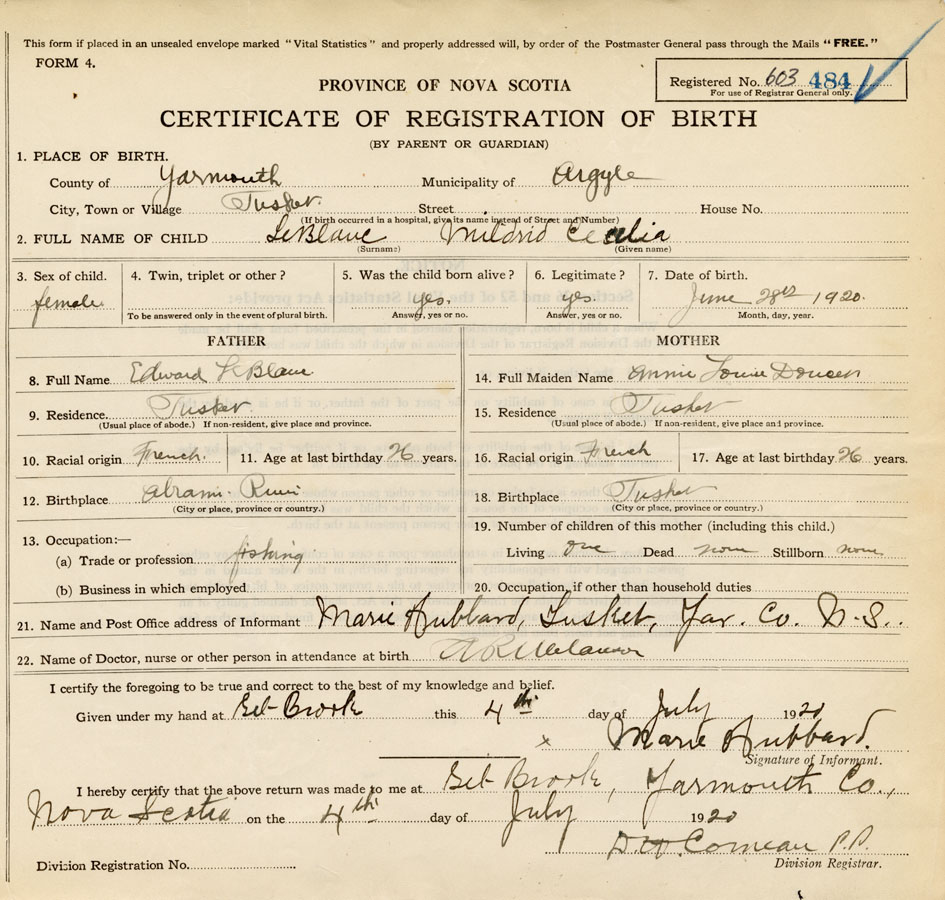 This form if placed in an unsealed envelope marked "Vital Statistics" and properly addressed will, by order of the Postmaster General pass through the Mails "FREE."
FORM 4.
Registered No. 603 484
For use of Registrar General only.
PROVINCE OF NOVA SCOTIA
CERTIFICATE OF REGISTRATION OF BIRTH
(BY PARENT OR GUARDIAN)
1. PLACE OF BIRTH.
County of Yarmouth Municipality of Argyle
City, Town or Village Tusket Street House No.
(If birth occurred in a hospital, give its name instead of Street and Number)
2. FULL NAME OF CHILD LeBlanc Mildrid Cecelia
(Surname) (Given name)
3. Sex of child. 4. Twin, triplet or other? 5. Was the child born alive? 6. Legitimate? 7. Date of birth.
female yes. yes. June 28 1920.
To be answered only in the event of plural birth. Answer, yes or no. Answer, yes or no. Month, day, year.
FATHER MOTHER
8. Full Name Edward LeBlanc 14. Full Maiden Name Annie Louise Doucet
9. Residence. Tusket 15. Residence Tusket
(Usual place of abode.) If non-resident, give place and province. (Usual place of abode.) If non-resident, give place and province.
10. Racial origin French. 11. Age at last birthday 26 years. 16. Racial origin French 17. Age at last birthday 26 years.
12. Birthplace Abrams River 18. Birthplace Tusket
(City or place, province or country.) (City or place, province or country.)
13. Occupation:— 19. Number of children of this mother (including this child.)
(a) Trade or profession fishing Living one Dead none Stillborn none
(b) Business in which employed 20. Occupation, if other than household duties
21. Name and Post Office address of Informant Marie Hubbard, Tusket, Yar. Co. N.S.
22. Name of Doctor, nurse or other person in attendance at birth A R Melanson
I certify the foregoing to be true and correct to the best of my knowledge and belief.
Given under my hand at Eel Brook this 4th day of July 1920
x Marie Hubbard.
Signature of Informant.
I hereby certify that the above return was made to me at Eel Brook, Yarmouth Co.,
Nova Scotia on the 4th day of July 1920
Comeau P.P.
Division Registration No. Division Registrar.